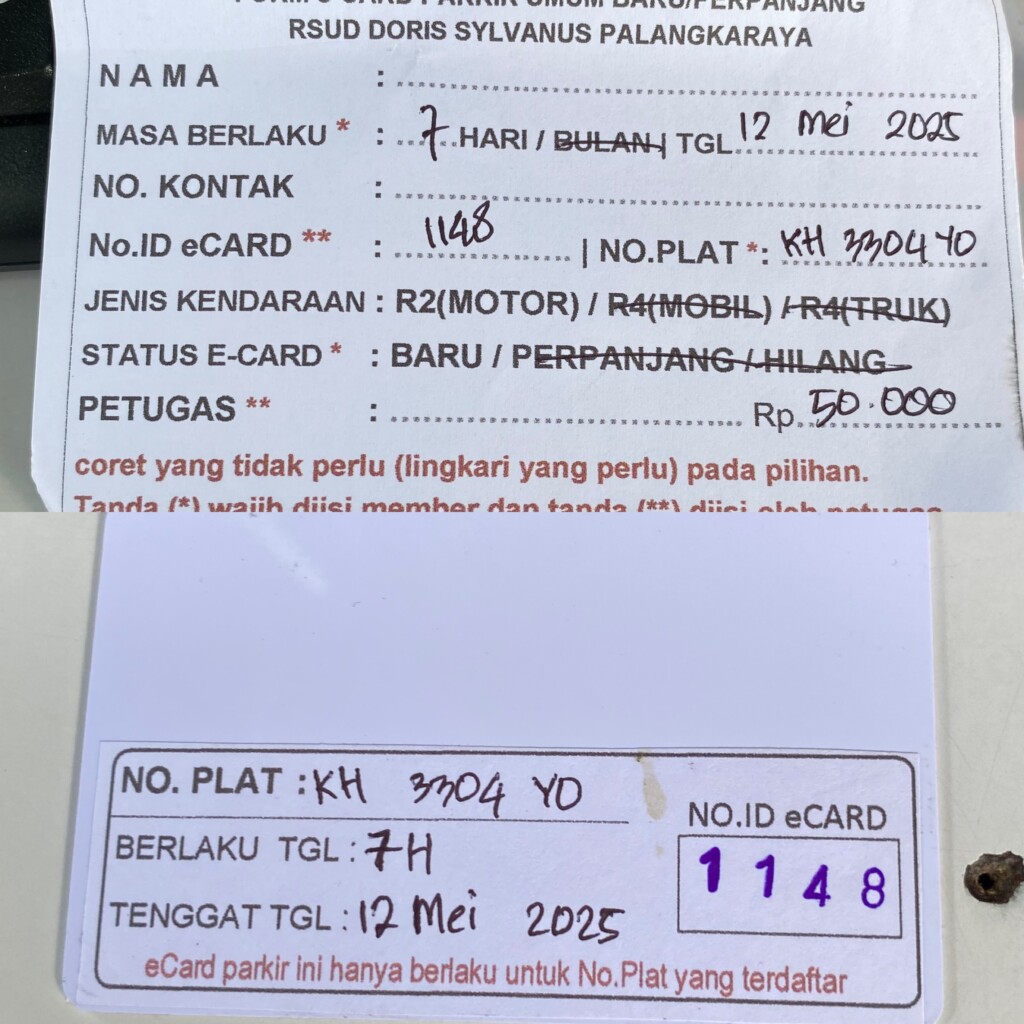 FORM E-CARD PARKIR UMUM BARU/PERPANJANG
RSUD DORIS SYLVANUS PALANGKARAYA
NAMA :
MASA BERLAKU * : 7 HARI / BULAN | TGL 12 Mei 2025
NO. KONTAK :
No.ID eCARD ** : 1148 | NO.PLAT *: KH 3304 YO
JENIS KENDARAAN : R2(MOTOR) / R4(MOBIL) / R4(TRUK)
STATUS E-CARD * : BARU / PERPANJANG / HILANG
PETUGAS ** : Rp. 50.000
coret yang tidak perlu (lingkari yang perlu) pada pilihan.
Tanda (*) wajib diisi member dan tanda (**) diisi oleh petugas
NO. PLAT : KH 3304 YO
BERLAKU TGL : 7H
TENGGAT TGL : 12 Mei 2025
NO.ID eCARD
1148
eCard parkir ini hanya berlaku untuk No.Plat yang terdaftar